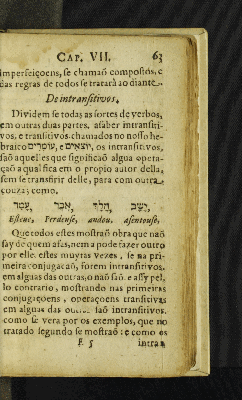 CAP. VII. 63
imperfeiçoens, se chamaõ compostos, e
das regras de todos se tratarà ao diante.
De intransitivos.
Dividem se todas as sortes de verbos,
em outras duas partes, asaber intransiti-
vos, e transitivos chamados no nosso he-
braico עומדים, e יוצאים, os intransitivos,
saõ aquelles que significaõ algua opera-
çaõ a qual fica em o proprio autor della,
sem se transfirir delle, para com outra
couza; como.
עָמַד אָבַד הָלַךְ יָשַׁב
Esteue, Perdeuse, andou, asentouse,
Que todos estes mostraõ obra que naõ
say de quem a fas, nem a pode fazer outro
por elle. estes muytas vezes, se na pri-
meira conjugacaõ, forem intransitivos,
em alguas das outras, o naõ saõ. e assy pel-
lo contrario, mostrando nas primeiras
conjugaçoens, operaçoens transitivas
em alguas das outras saõ intransitivos.
como se vera por os exemplos, que no
tratado segundo se mostraõ: e como os
F 5 intran